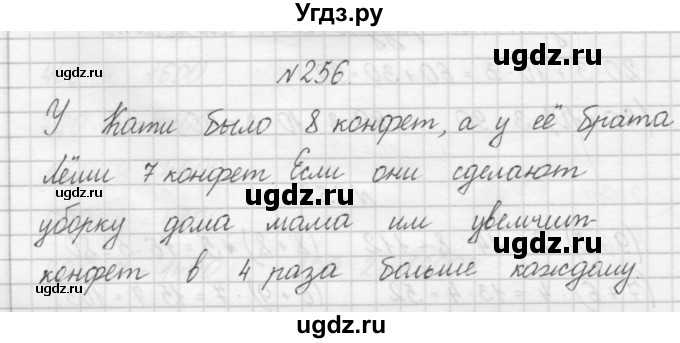 Угдз.ру
ugdz.ru ugdz.ru ugdz.ru
№256.
У Кати было 8 конфет, а у её брата
ugdz.ru
Лёши 7 конфет Если они сделают
ugdz.ru
уборку дома мама им увеличит
ugdz.ru ugdz.ru
конфет в 4 раза больше каждому
ugdz.ru
ugdz.ru